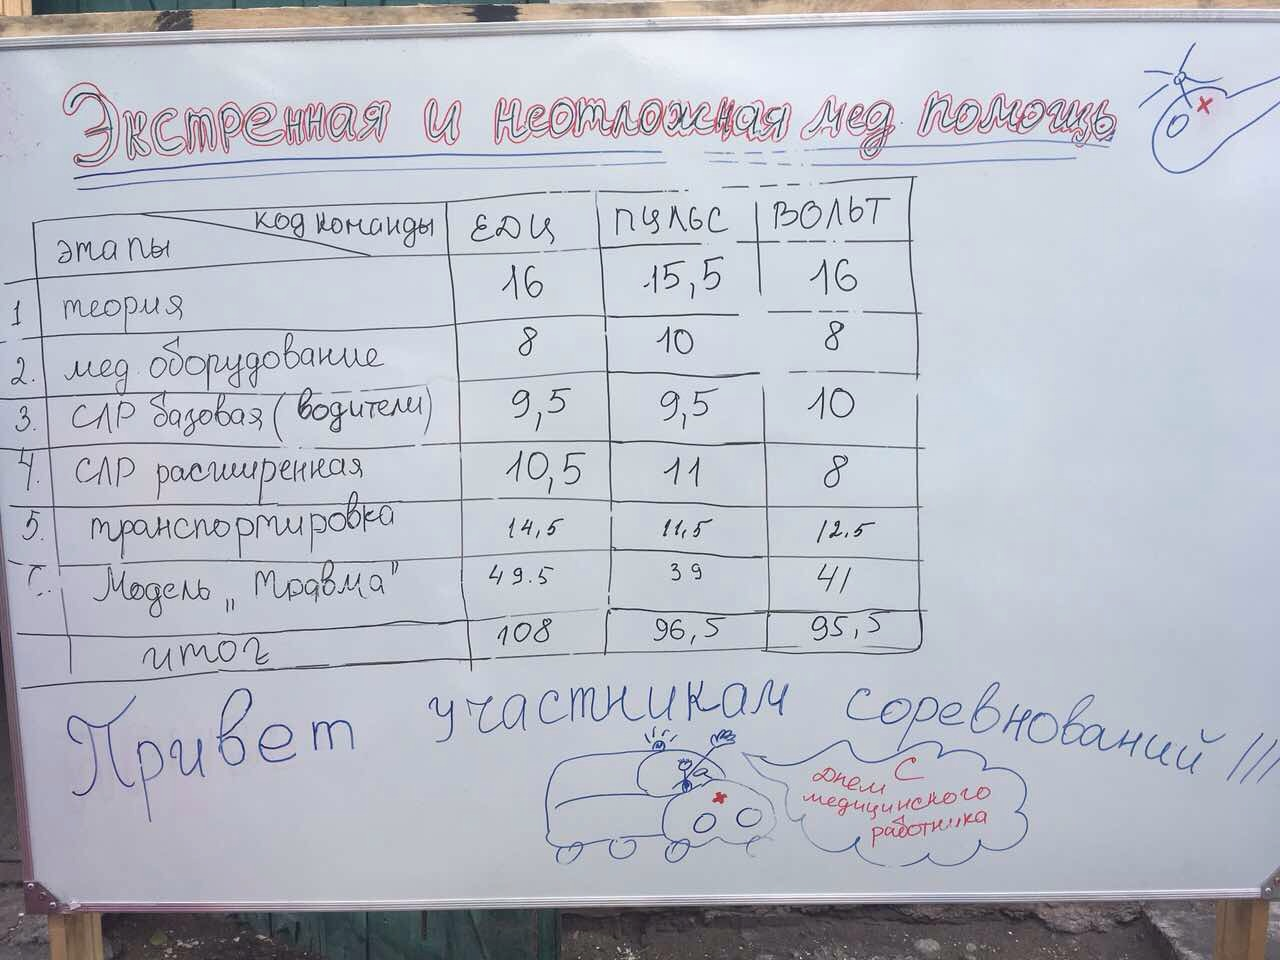 Экстренная и неотложная мед. помощь
код команды ЕДЦ ПУЛЬС ВОЛЬТ
этапы
1 теория 16 15,5 16
2. мед. оборудование 8 10 8
3. СЛР базовая (водители) 9,5 9,5 10
4. СЛР расширенная 10,5 11 8
5. транспортировка 14,5 11,5 12.5
Модель „Травма" 49.5 39 41
итог 108 96,5 95,5
Привет участникам соревнований !!!
С
Днем
медицинского
работника